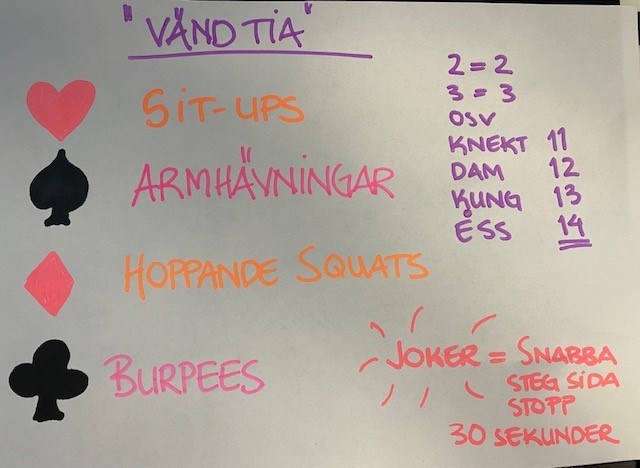 "VÄND TIA"
SiT-UPS
ARMHÄVNINGAR
HOPPANDE SQUATS
BURPEES
2 = 2
3 = 3
OSV
KNEKT 11
DAM 12
KUNG 13
ESS 14
JOKER = SNABBA
STEG SiDA
STOPP
30 SEKUNDER